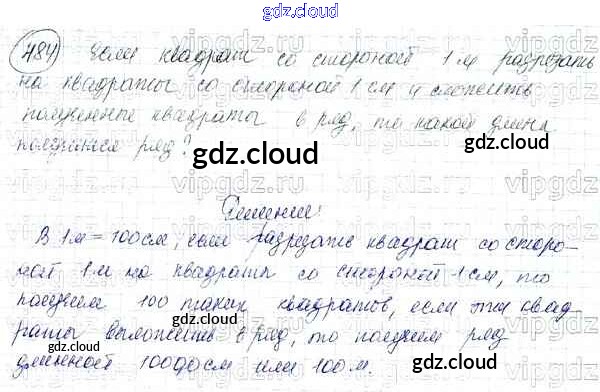 gdz.cloud
484) Если квадрат со стороной 1 м разрезать
на квадраты со стороной 1 см и сложить
полученные квадраты в ряд, то какой длины
получится ряд?
gdz.cloud
gdz.cloud
Решение:
В 1 м = 100 см, если разрезать квадрат со сторо-
ной 1 м на квадраты со стороной 1 см, то
получим 100 таких квадратов, если эти квад-
раты выложить в ряд, то получим ряд
длинной 10000 см или 100 м.
gdz.cloud
gdz.cloud
gdz.cloud